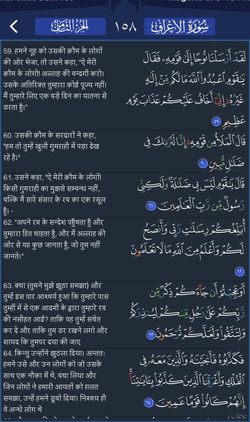 الجزء الثامن
١٥٨
سورة الأعراف
59. हमने नूह को उसकी क़ौम के लोगों
की ओर भेजा, तो उसने कहा, "ऐ मेरी
क़ौम के लोगो! अल्लाह की बन्दगी करो।
उसके अतिरिक्त तुम्हारा कोई पूज्य नहीं।
मैं तुम्हारे लिए एक बड़े दिन का यातना से
डरता हूँ।"
لَقَدْ أَرْسَلْنَا نُوحًا إِلَىٰ قَوْمِهِۦ فَقَالَ
يَٰقَوْمِ ٱعْبُدُوا۟ ٱللَّهَ مَا لَكُم مِّنْ إِلَٰهٍ
غَيْرُهُۥٓ إِنِّىٓ أَخَافُ عَلَيْكُمْ عَذَابَ يَوْمٍ
عَظِيمٍ ٥٩
60. उसकी क़ौम के सरदारों ने कहा,
"हम तो तुम्हें खुली गुमराही में पड़ा देख
रहे है।"
قَالَ ٱلْمَلَأُ مِن قَوْمِهِۦٓ إِنَّا لَنَرَىٰكَ فِى
ضَلَٰلٍ مُّبِينٍ ٦٠
61. उसने कहा, "ऐ मेरी क़ौम के लोगों!
किसी गुमराही का मुझसे सम्बन्ध नहीं,
बल्कि मैं सारे संसार के रब का एक रसूल
हूँ। -
قَالَ يَٰقَوْمِ لَيْسَ بِى ضَلَٰلَةٌ وَلَٰكِنِّى
رَسُولٌ مِّن رَّبِّ ٱلْعَٰلَمِينَ ٦١
62. "अपने रब के सन्देश पहुँचता हूँ और
तुम्हारा हित चाहता हूँ, और मैं अल्लाह की
ओर से वह कुछ जानता हूँ, जो तुम नहीं
जानते।"
أُبَلِّغُكُمْ رِسَٰلَٰتِ رَبِّى وَأَنصَحُ
لَكُمْ وَأَعْلَمُ مِنَ ٱللَّهِ مَا لَا تَعْلَمُونَ
٦٢
63. क्या (तुमने मुझे झूठा समझा) और
तुम्हें इस पार आश्चर्य हुआ कि तुम्हारे पास
तुम्हीं में से एक आदमी के द्वारा तुम्हारे रब
की नसीहत आई? ताकि वह तुम्हें सचेत
कर दे और ताकि तुम डर रखने लगो और
शायद कि तुमपर दया की जाए
أَوَعَجِبْتُمْ أَن جَآءَكُمْ ذِكْرٌ مِّن
رَّبِّكُمْ عَلَىٰ رَجُلٍ مِّنكُمْ لِيُنذِرَكُمْ
وَلِتَتَّقُوا۟ وَلَعَلَّكُمْ تُرْحَمُونَ ٦٣
64. किन्तु उन्होंने झुठला दिया। अन्ततः
हमने उसे और उन लोगों को जो उसके
साथ एक नौका में थे, बचा लिया और
जिन लोगों ने हमारी आयतों को ग़लत
समझा, उन्हें हमने डूबो दिया। निश्चय ही
वे अन्धे लोग थे
فَكَذَّبُوهُ فَأَنجَيْنَٰهُ وَٱلَّذِينَ مَعَهُۥ فِى
ٱلْفُلْكِ وَأَغْرَقْنَا ٱلَّذِينَ كَذَّبُوا۟ بِـَٔايَٰتِنَآ
إِنَّهُمْ كَانُوا۟ قَوْمًا عَمِينَ ٦٤